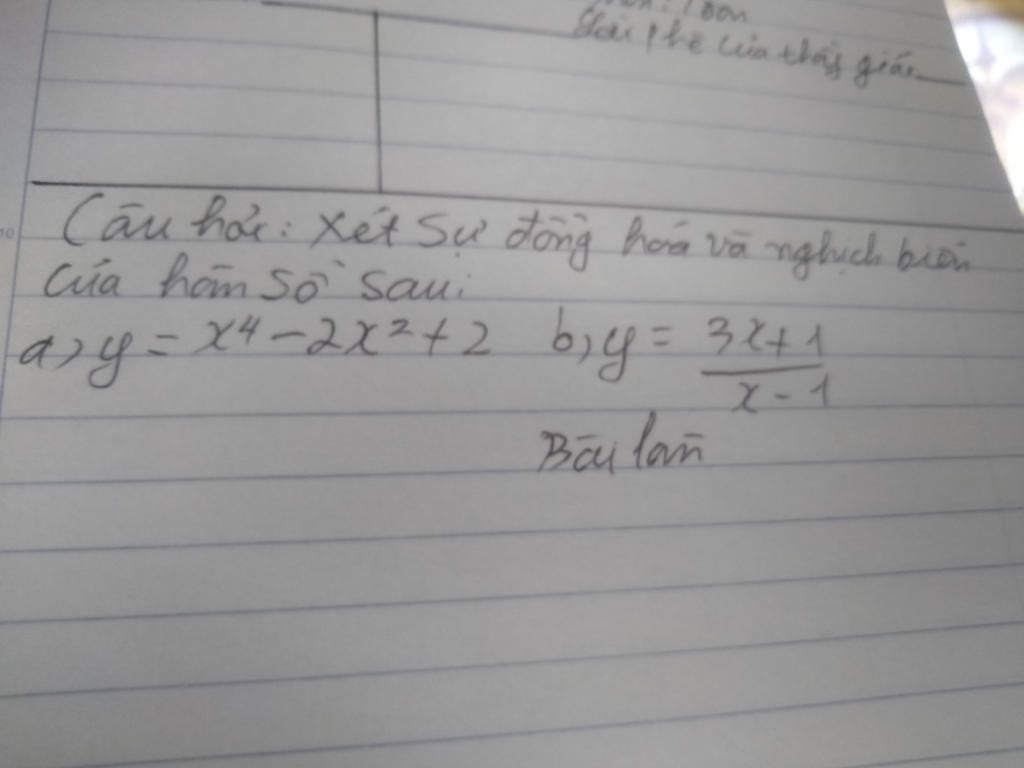 phê của thầy giáo
Câu hỏi: Xét Sự đồng hoá và nghịch biến
của hàm Số sau:
a, y = x⁴ - 2x² + 2 b, y = 3x+1 / x-1
Bài làm